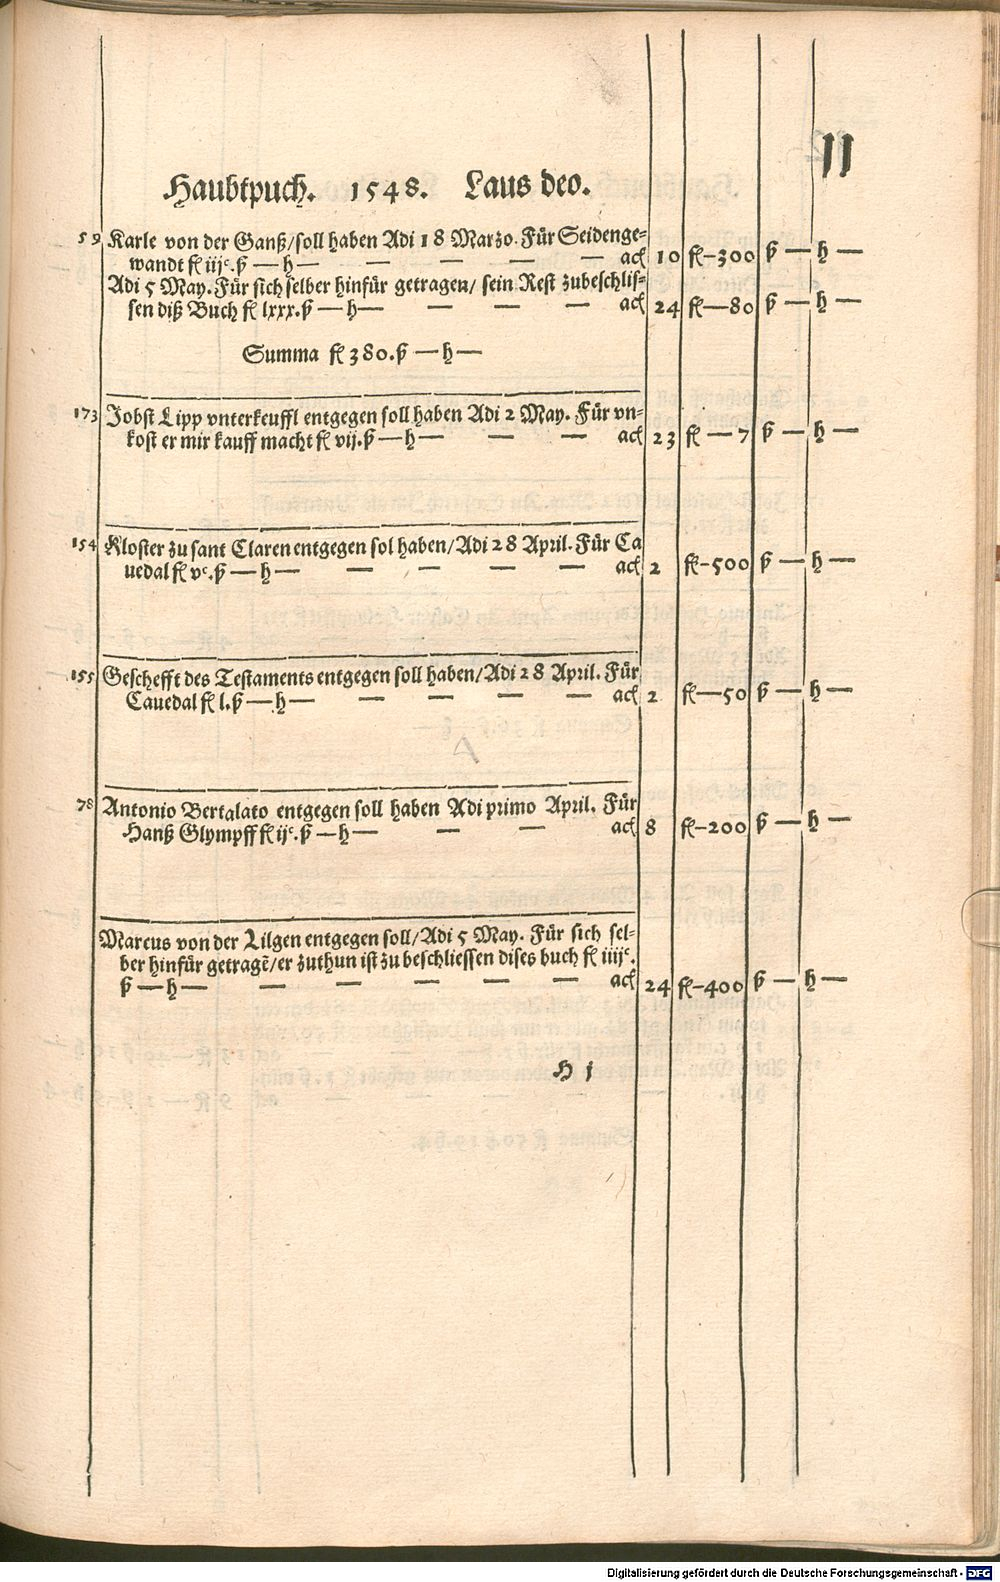 11
Haubtpuch. 1548. Laus deo.
59 Karle von der Ganß/soll haben Adi 18 Marzo. Für Seidenge-
wandt fl iijᶜ. ß — h — — — — — ach 10 fl—300 ß — h —
Adi 5 May. Für sich selber hinfür getragen/ sein Rest zubeschlis-
sen diß Buch fl lxxx. ß — h — — — — — ach 24 fl—80 ß — h —
Summa fl 380. ß — h —
173 Jobst Lipp vnterkeuffl entgegen soll haben Adi 2 May. Für vn-
kost er mir kauff macht fl vij. ß — h — — — ach 23 fl — 7 ß — h —
154 Kloster zu sant Claren entgegen sol haben/ Adi 28 April. Für Ca
uedal fl vᶜ. ß — h — — — — — ach 2 fl—500 ß — h —
155 Geschefft des Testaments entgegen soll haben/ Adi 28 April. Für
Cauedal fl l. ß — h — — — — — ach 2 fl—50 ß — h —
78 Antonio Bertalato entgegen soll haben Adi primo April. Für
Hanß Glympff fl ijᶜ. ß — h — — — ach 8 fl—200 ß — h —
Marcus von der Lilgen entgegen soll/ Adi 5 May. Für sich sel-
ber hinfür getragē/ er zuthun ist zu beschliessen dises buch fl iiijᶜ.
ß — h — — — — — — ach 24 fl—400 ß — h —
H j
Digitalisierung gefördert durch die Deutsche Forschungsgemeinschaft - DFG